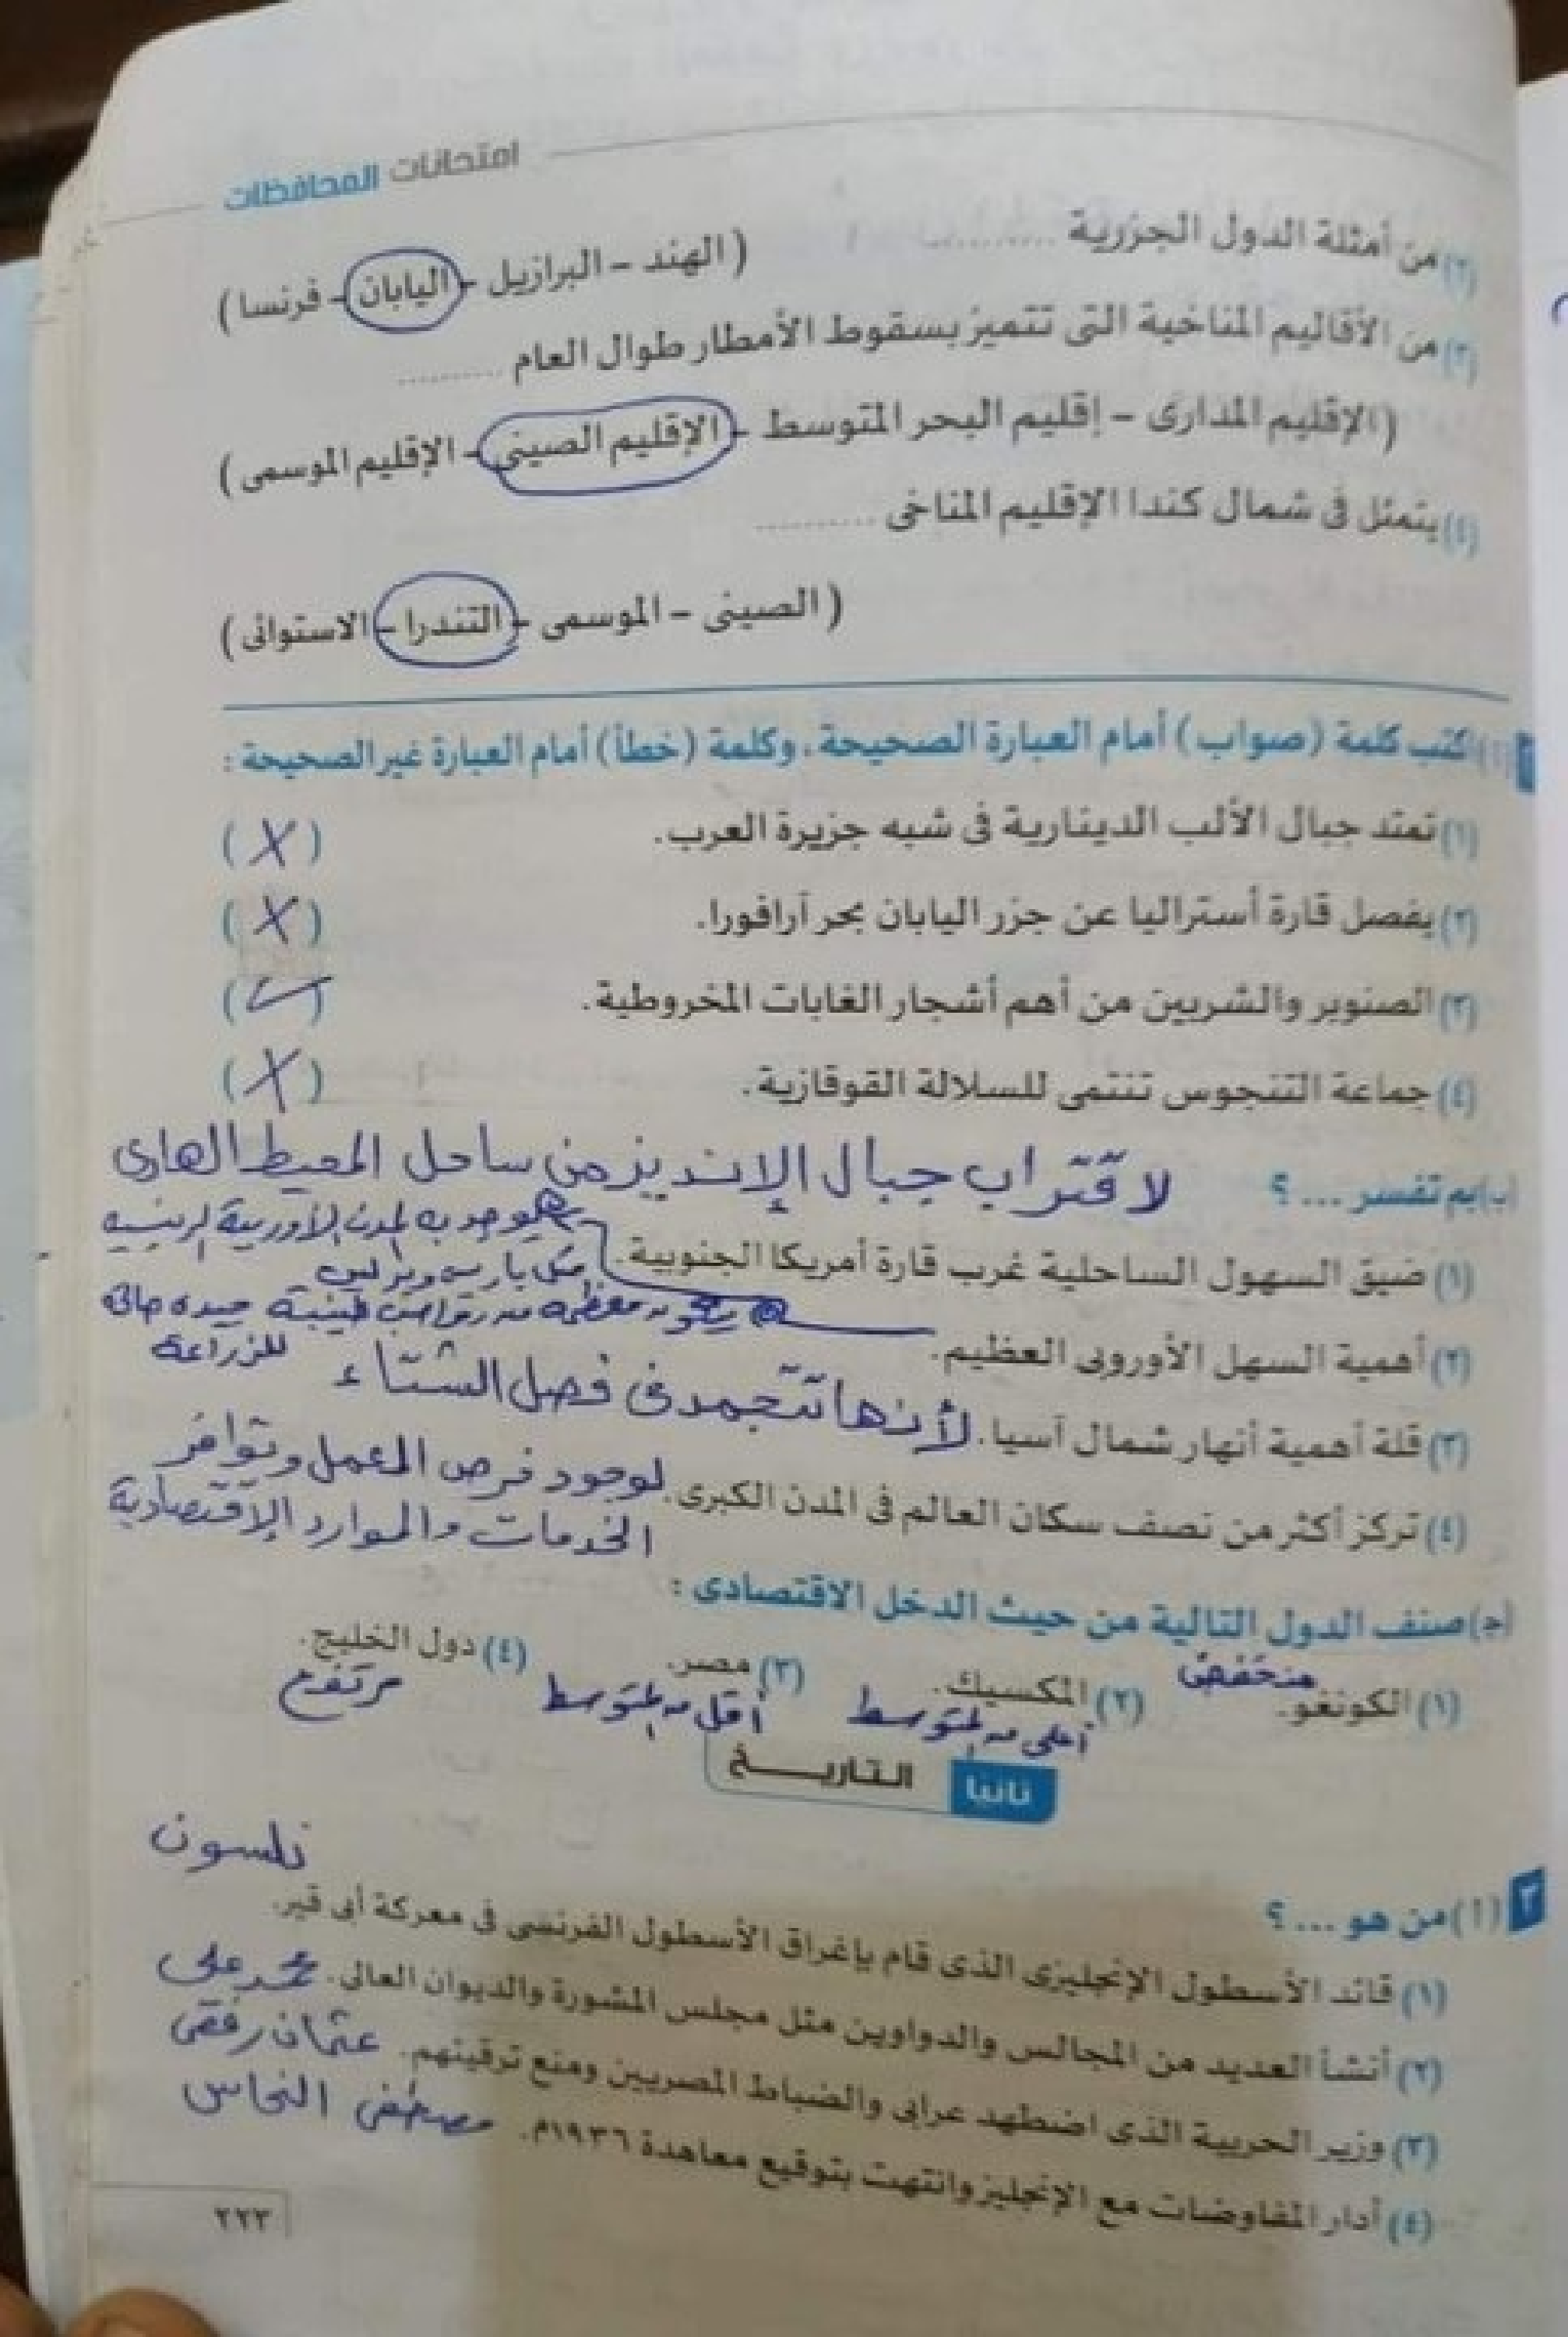 امتحانات المحافظات
(٢) من أمثلة الدول الجزرية ............
( الهند - البرازيل - اليابان - فرنسا )
(٣) من الأقاليم المناخية التى تتميز بسقوط الأمطار طوال العام ..........
( الإقليم المدارى - إقليم البحر المتوسط - الإقليم الصينى - الإقليم الموسمى )
(٤) يتمثل فى شمال كندا الإقليم المناخى ............
( الصينى - الموسمى - التندرا - الاستوائى )
(أ) اكتب كلمة (صواب) أمام العبارة الصحيحة، وكلمة (خطأ) أمام العبارة غير الصحيحة :
(١) تمتد جبال الألب الدينارية فى شبه جزيرة العرب. (X)
(٢) يفصل قارة أستراليا عن جزر اليابان بحر آرافورا. (X)
(٣) الصنوبر والشربين من أهم أشجار الغابات المخروطية. (✓)
(٤) جماعة التنجوس تنتمى للسلالة القوقازية. (X)
(ب) بم تفسر ... ؟ لاقتراب جبال الإنديز من ساحل المحيط الهادى
(١) ضيق السهول الساحلية غرب قارة أمريكا الجنوبية.
وجود به المدن الأوربية الرئيسية
مثل باريس وبرلين
معظمه من رواسب طينية جيدة صالحة
للزراعة
(٢) أهمية السهل الأوروبى العظيم.
(٣) قلة أهمية أنهار شمال آسيا. لأنها تتجمد فى فصل الشتاء
(٤) تركز أكثر من نصف سكان العالم فى المدن الكبرى. لوجود فرص العمل وتوافر
الخدمات والموارد الإقتصادية
(ج) صنف الدول التالية من حيث الدخل الاقتصادى :
(١) الكونغو. (٢) المكسيك. (٣) مصر. (٤) دول الخليج.
منخفض أعلى من المتوسط أقل من المتوسط مرتفع
ثانيا التاريخ
٣ (أ) من هو ... ؟ نلسون
(١) قائد الأسطول الإنجليزى الذى قام بإغراق الأسطول الفرنسى فى معركة أبى قير.
(٢) أنشأ العديد من المجالس والدواوين مثل مجلس المشورة والديوان العالى. محمد على
(٣) وزير الحربية الذى اضطهد عرابى والضباط المصريين ومنع ترقيتهم. عثمان رفقى
(٤) أدار المفاوضات مع الإنجليز وانتهت بتوقيع معاهدة ١٩٣٦م. مصطفى النحاس
٢٢٣